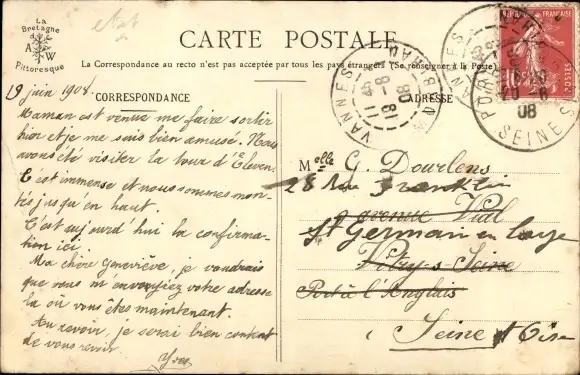 La
Bretagne
A W
Pittoresque
CARTE POSTALE
La Correspondance au recto n'est pas acceptée par tous les pays étrangers (Se renseigner à la Poste)
CORRESPONDANCE
19 juin 1908.
Maman est venue me faire sortir
hier et je me suis bien amusé. Nous
avons été visiter la tour d'Eleven.
C'est immense et nous sommes mon-
tés jusqu'en haut.
C'est aujourd'hui la confirma-
tion ici.
Ma chère Geneviève, je voudrais
que vous m'envoyiez votre adresse
là où vous êtes maintenant.
Au revoir, je serai bien content
de vous revoir.
Yves
ADRESSE
Melle G. Dourlens
28 Rue Franklin
9 avenue Vial
St Germain en Laye
Vitry-s-Seine
Port à l'Anglais
(Seine et Oise
VANNES
18-6
08
MORBIHAN
SEINE
08
10
POSTES